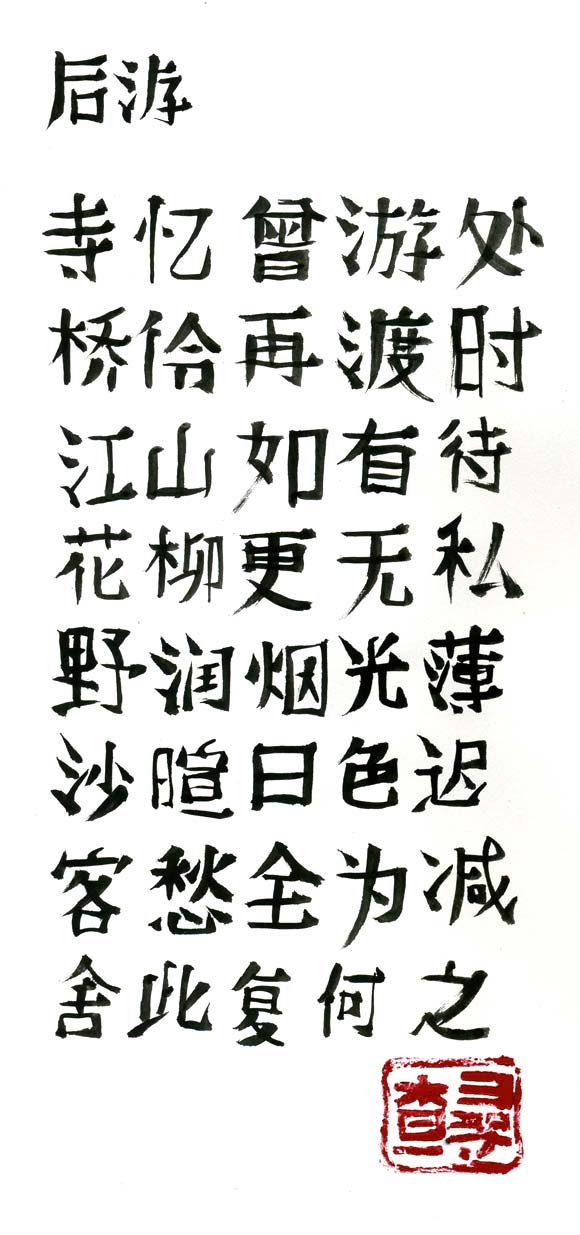 后游
寺忆曾游处
桥伶再渡时
江山如有待
花柳更无私
野润烟光薄
沙暄日色迟
客愁全为减
舍此复何之